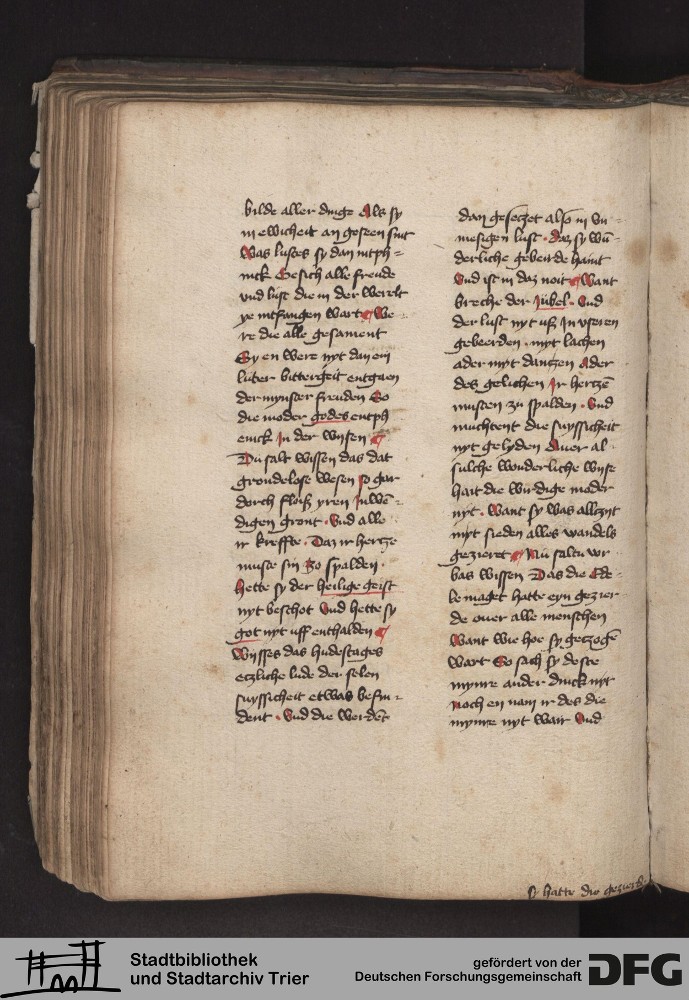 bilde aller dinge Als sy
in ewicheit an geseen sint
Was lustes sy dan intph=
inck Gesich alle freude
vnd lust die in der werelt
ye intfangen wart We=
re die alle gesament
Sy en were nyt dan ein
luter bittergeit entgaen
der mynster freuden So
die moder godes entph
enick In der wysen
Du salt wissen das dat
grondelose wesen so gar
dorch floiß yren Inwē=
digen gront. Vnd alle
ir kreffte. Daz ir hertze
muste sin zo spalden.
Hette sy der heilige geist
nyt beschot Vnd hette sy
got nyt uff enthalden
Wysses das hudestages
etzliche lude der selen
suyssicheit etwas befin=
dent. Vnd die werdēt
dan gesetzet also in vn=
mesigen lust. daz sy wū=
derliche gebeirde haint
Vnd ist in daz noit Want
breche der Jubel. Vnd
der lust nyt uß In vseren
gebeerden. myt lachen
ader myt dantzen Ader
des gelichen Ir hertzē
musten zu spalden. Vnd
muchtent die suyssicheit
nyt gelyden Auer al=
sulche wonderliche wyse
hait die wirdige moder
nyt. Want sy was altzyt
myt sieden alles wandels
gezieret Nu saltu vor
bas wissen Das die Ede=
le maget hatte eyn gezier
de ouer alle menschen
Want wie hoe sy getzogē
wart So sach sy deste
mynre ander dinck nyt
Noch en nam ir des die
mynre nyt wair Vnd
sy hatte die gezierde
Stadtbibliothek
und Stadtarchiv Trier
gefördert von der
Deutschen Forschungsgemeinschaft
DFG